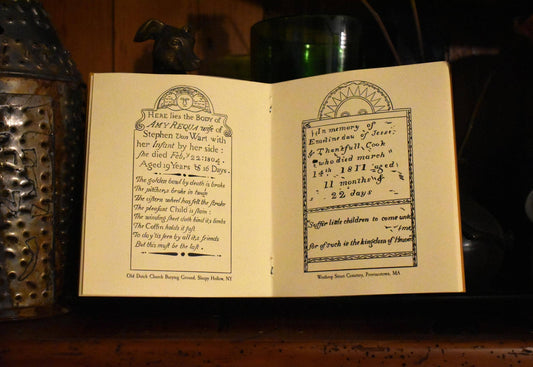 HERE lies the BODY of
AMY REQUA wife of
Stephen Van Wart with
her Infant by her side:
she died Feby 22: 1804.
Aged 19 Years & 16 Days.
The golden bowl by death is broke
The pitcher broke in twain
The cistern wheel has felt the stroke
The pleasant Child is slain:
The winding sheet doth bind its limbs
The Coffin holds it fast
To day tis seen by all its friends
But this must be the last.
Old Dutch Church Burying Ground, Sleepy Hollow, NY
In memory of
Emeline dau. of Jesse
& Thankfull Cook
who died march
14th 1811 aged
11 months &
22 days
Suffer little children to come unto
me
for of such is the kingdom of Heaven
Winthrop Street Cemetery, Provincetown, MA